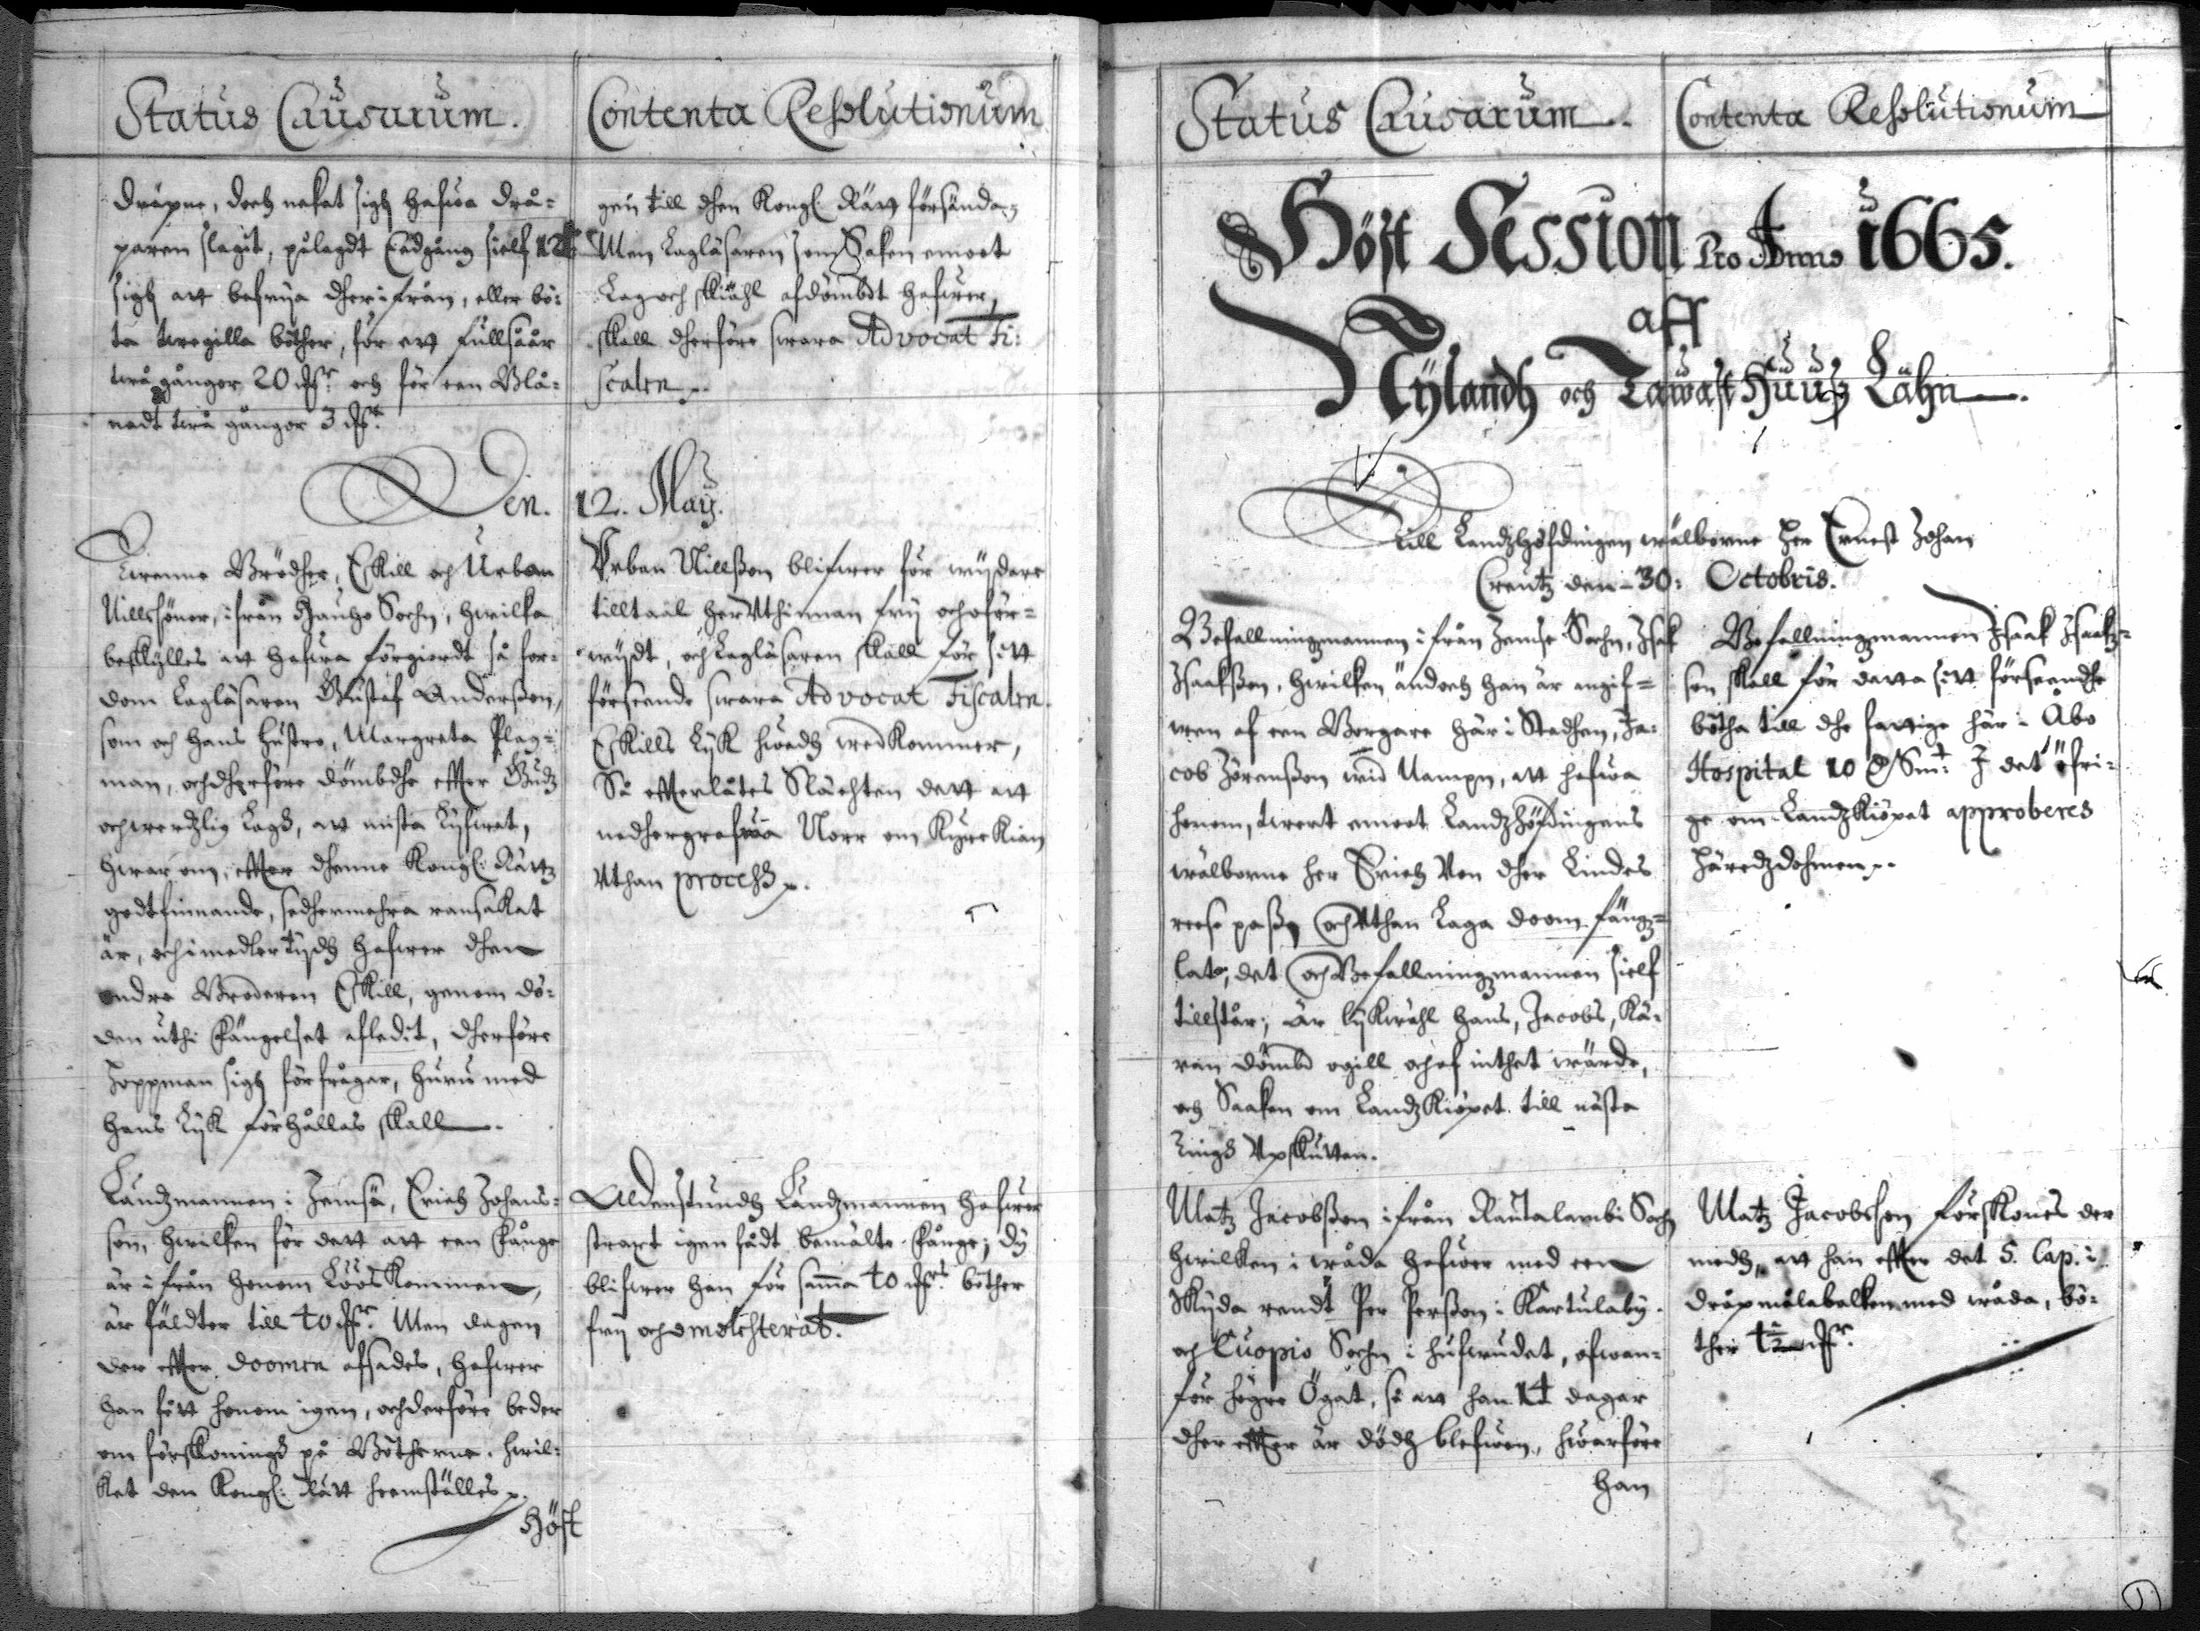 Status Causarum.
dråpne, doch nekat sigh hafwa drå-
paren slagit, pålagdt Eedgång sielf 12te
sigh att befrija dher ifrån, eller bö-
ta twegilla böther, för ett fullsåår
twå gånger 20 mkr och för een Blå-
nadt twå gånger 3 mkr
Den.
Twenne Brödher, Eskill och Urban
Nillsöner, ifrån Hauho Sochn, hwilka
beskylles att hafwa förgiordt så for-
dom Lagläsaren Gustaf Anderßon,
som och hans hustro, Margreta Plag-
man, och dherföre dömbdhe effter Gudz
och werdzlig Lagh, att mista Lyfwet,
hwar om, effter dhenne Kongl: Rättz
godtfinnande, sedhermehra ransakat
är, och i medler tijdh hafwer dhen
andre Broderen Eskill, genom dö-
den uthi Fängelset afledit, dherföre
Joppman sigh förfrågar, huru med
hans Lijk förhållas skall.
Landzmannen i Jemsä, Erich Johans-
son, hwilken för datt att een Fånge
är ifrån honom Löös kommen,
är fäldter till 40 mkr. Men dagen
der effter doomen afsades, hafwer
han fått honom igen, och derföre beder
om förskoningh på Bötherne, hwil-
ket den Kongl: Rätt heemställes.
Höst
Contenta Resolutionum
gen till dhen Kongl: Rätt försända,
Men Lagläsaren som Saken emoot
Lag och skiähl afdömbdt hafwer,
skall dherföre swara Advocat Fi-
scalen.
12. Maij.
Urban Nillßon blifwer för wijdare
tilltaal her Vthinnan frij och oför-
wijdt, och Lagläsaren skall för sitt
förseende swara Advocat Fiscalen.
Eskills Lijk hwadh wedkommer,
Så effterlåtes Slächten datt att
nedhergrafwa Norr om Kyrckian
Vthan process.
Aldenstundh Landzmannen hafwer
straxt igen fådt bemälte Fånge; dy
blifwer han för samma 40 mkrs böther
frij och omolesterat.
Status Causarum. Contenta Resolutionum
Höst Session Pro Anno 1665.
aff
Nÿlandh och Tawast Huuß Lähn.
Till Landzhöfdingen wälborne Her Ernest Johan
Creutz den 30: Octobris.
Befallningzmannen ifrån Jemse Sochn, Isak
Isaakßon, hwilken ändoch han är angif-
wen af een Borgare här i Stadhen, Ja-
cob Jörenßon wid Nampn, att hafwa
honom, twert emoot Landzhöfdingens
wälborne her Erich Von dher Lindes
reese paß, och Vthan Laga doom fäng-
lat, det och Befallningzmannen sielf
tillstår; är lijkwähl hans, Jacobs, Kä-
ran dömbd ogill och af inthet wärde,
och Saaken om Landzkiöpet till nästa
Tingh Vpskutten.
Matz Jacobßon ifrån Rautalambi Sochn
hwilken i wåda hafwer med een
Skijda rendt Per Perßon i Kartulaby
och Cuopio Sochn i hufwudet, ofwan-
för högre Ögat, så att han 14 dagar
dher effter är dödh blefwen, hwarföre
han
Befallningzmannen Isaak Isaakz-
son skall för datta sitt förseendhe
bötha till dhe fattige här i Åbo
Hospital 10 D/Smt. I det öfri-
ge om Landzkiöpet approberes
Häredzdohmen.
Matz Jacobsson förskones der
medh, att han effter det 5. Cap: i
dråpmålabalken med wåda, bö-
ther 4½ mkr.